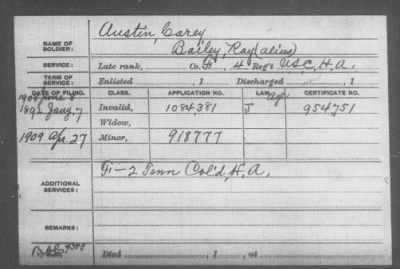 Austin, Carey
NAME OF SOLDIER: Bailey, Ray (alias)
SERVICE: Late rank, Co. F, 4 Reg't U.S.C.H.A.
TERM OF SERVICE: Enlisted , 1 Discharged , 1
DATE OF FILING. CLASS. APPLICATION NO. LAW. CERTIFICATE NO.
1908 June 8 Age
1892 Jany, 7 Invalid, 1084,381 J 954,751
Widow,
1909 Apr. 27 Minor, 918777
ADDITIONAL SERVICES: F-2 Tenn Col'd, H.A.
REMARKS:
Died , 1 , at